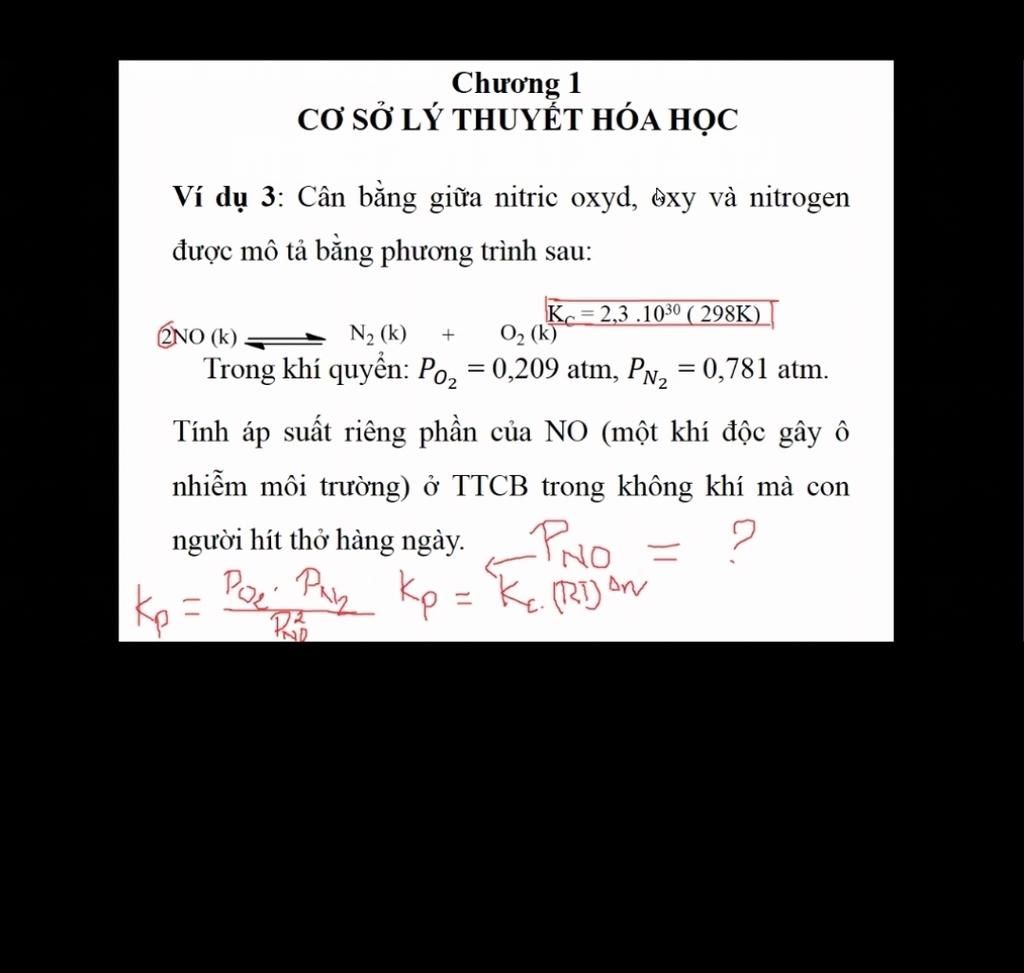 Chương 1
CƠ SỞ LÝ THUYẾT HÓA HỌC
Ví dụ 3: Cân bằng giữa nitric oxyd, oxy và nitrogen
được mô tả bằng phương trình sau:
K_C = 2,3 .10³⁰ ( 298K)
2NO (k) ⇌ N₂ (k) + O₂ (k)
Trong khí quyển: P_{O₂} = 0,209 atm, P_{N₂} = 0,781 atm.
Tính áp suất riêng phần của NO (một khí độc gây ô
nhiễm môi trường) ở TTCB trong không khí mà con
người hít thở hàng ngày. ← P_{NO} = ?
K_p = P_{O₂} . P_{N₂} / P_{NO}² K_p = K_c . (RT)^{Δn}